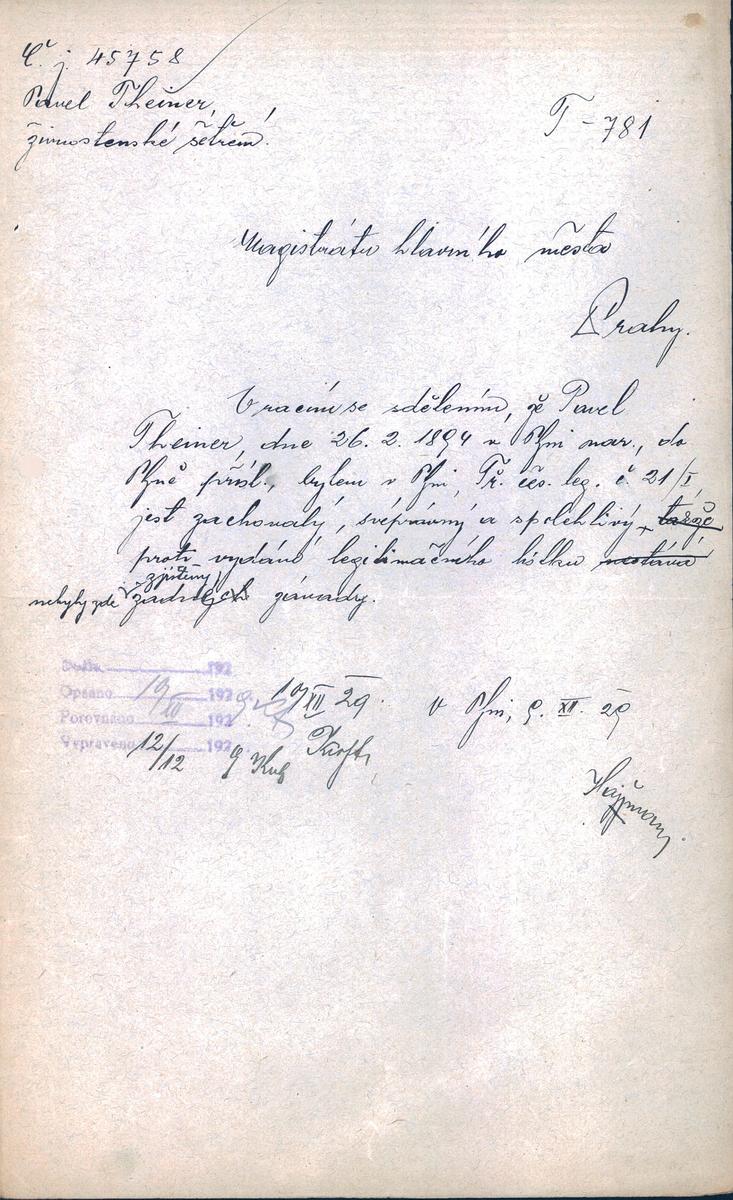 Č. j. 45758
Pavel Theiner,
živnostenské šetření.
T-781
Magistrátu hlavního města
Prahy.
Vracím se sdělením, že Pavel
Theiner, dne 26. 2. 1894 v Plzni nar., do
Plzně přísl., bytem v Plzni, Tř. čes. leg. č. 21/I,
jest zachovalý, svéprávný a spolehlivý, takže
proti vydání legitimačního lístku nestává
nebyly zde zjištěny žádných závady.
Došlo 192
Opsáno 10/XII 1929
Porovnáno 192
Vypraveno 12/12 192
10/XII 29.
V Plzni, 9. XII. 29